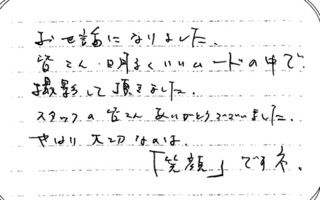 お世話になりました。
皆さん 明るくいいムードの中で
撮影して頂きました。
スタッフの皆さん ありがとうございました。
やはり大切なのは、
「笑顔」ですネ。